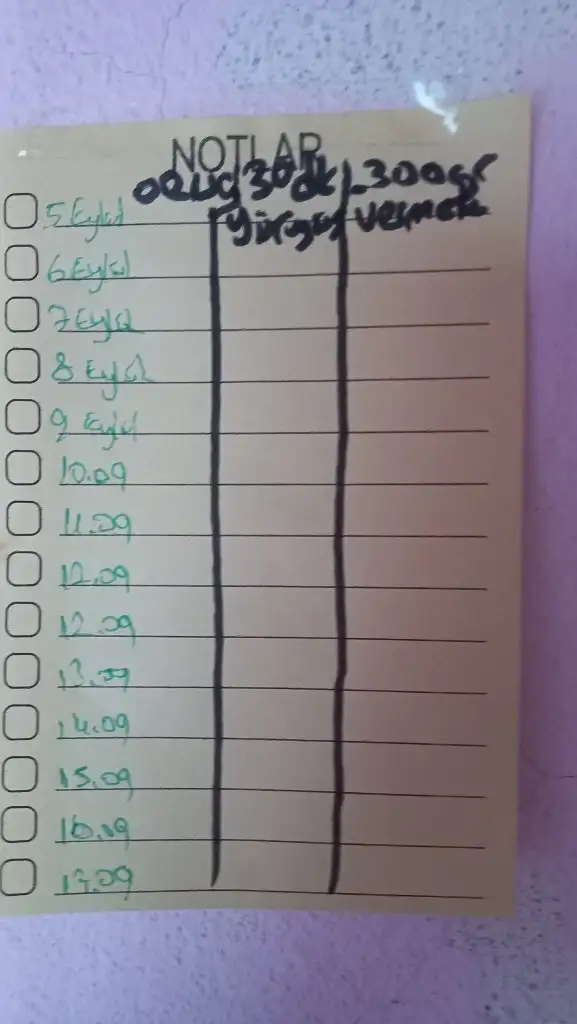 NOTLAR
oruç 30 dk -300gr
yürüyüş vermek
5 Eylül
6 Eylül
7 Eylül
8 Eylül
9 Eylül
10.09
11.09
12.09
12.09
13.09
14.09
15.09
16.09
17.09